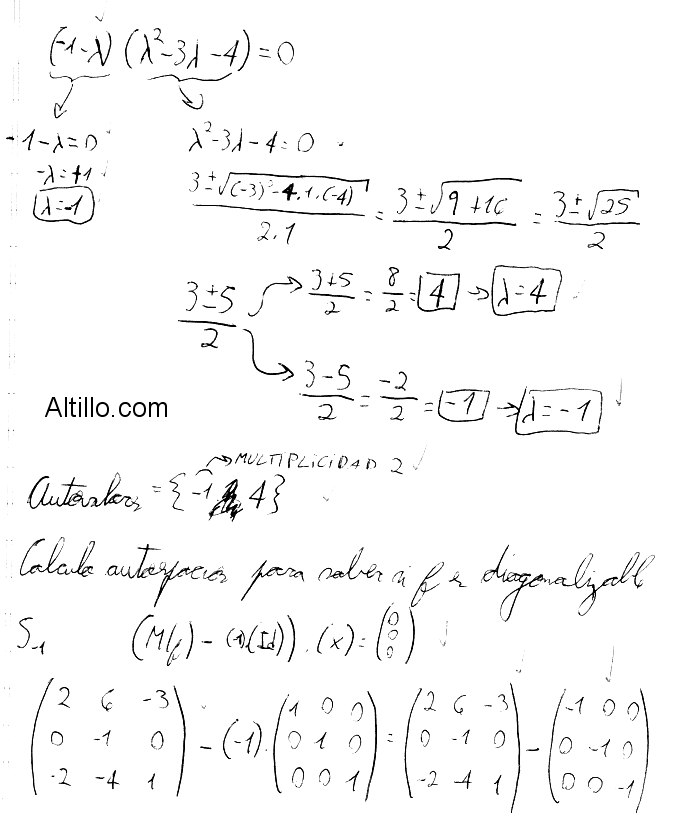 (-1-λ) (λ²-3λ-4) = 0
-1-λ=0 λ²-3λ-4=0
-λ=+1
λ=-1
3±√(-3)²-4.1.(-4) / 2.1 = 3±√9+16 / 2 = 3±√25 / 2
3±5 / 2 → 3+5 / 2 = 8 / 2 = 4 → λ=4
→ 3-5 / 2 = -2 / 2 = -1 → λ=-1
Altillo.com
→ MULTIPLICIDAD 2
Autovalores = {-1 4}
Calculo autoespacios para saber si f es diagonalizable
S₋₁ (M(f) - (-1)(Id)) . (x) = (0 0 0)
(2 6 -3) - (-1) . (1 0 0) = (2 6 -3) - (-1 0 0)
(0 -1 0) (0 1 0) (0 -1 0) (0 -1 0)
(-2 -4 1) (0 0 1) (-2 -4 1) (0 0 -1)